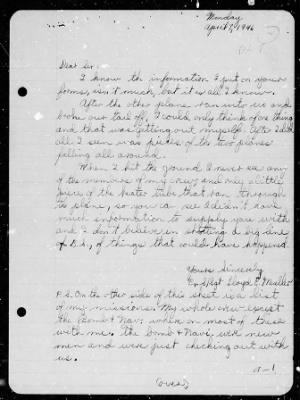 Monday
April 1, 1946
Dear Sir:
I know the information I put on your
forms, isn't much, but it is all I know.
After the other plane ran into us and
broke our tail off, I could only think of one thing
and that was getting out myself. After I did
all I seen was pieces of the two planes
falling all around.
When I hit the ground I never seen any
of the members of my crew and only a little
piece of the heater tube that ran through
the plane, so you can see I didn't have
much information to supply you with
and I don't believe in shooting a big line
of things that could have happened.
Yours Sincerely
Lloyd E.
P.S. On the other side of this sheet is a list
of my missions. My whole crew except
the Bomb & Nav. where on most of these
with me. The Bomb & Nav. were new
men and were just checking out with
us.
(over)